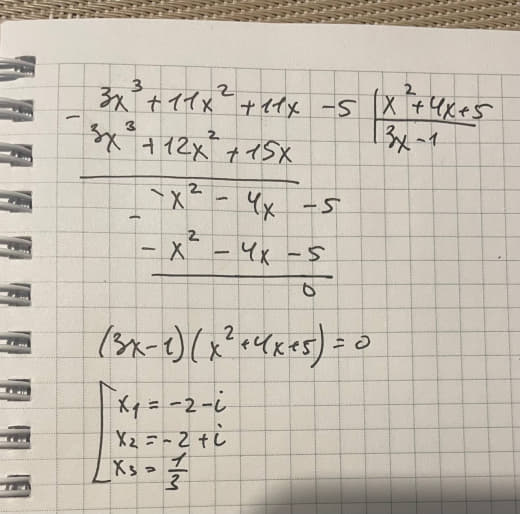 3x³ + 11x² + 11x - 5 | x² + 4x + 5
- 3x³ + 12x² + 15x | 3x - 1
- x² - 4x - 5
- - x² - 4x - 5
0
(3x - 1)(x² + 4x + 5) = 0
[ x₁ = -2 - i
x₂ = -2 + i
x₃ = 1/3